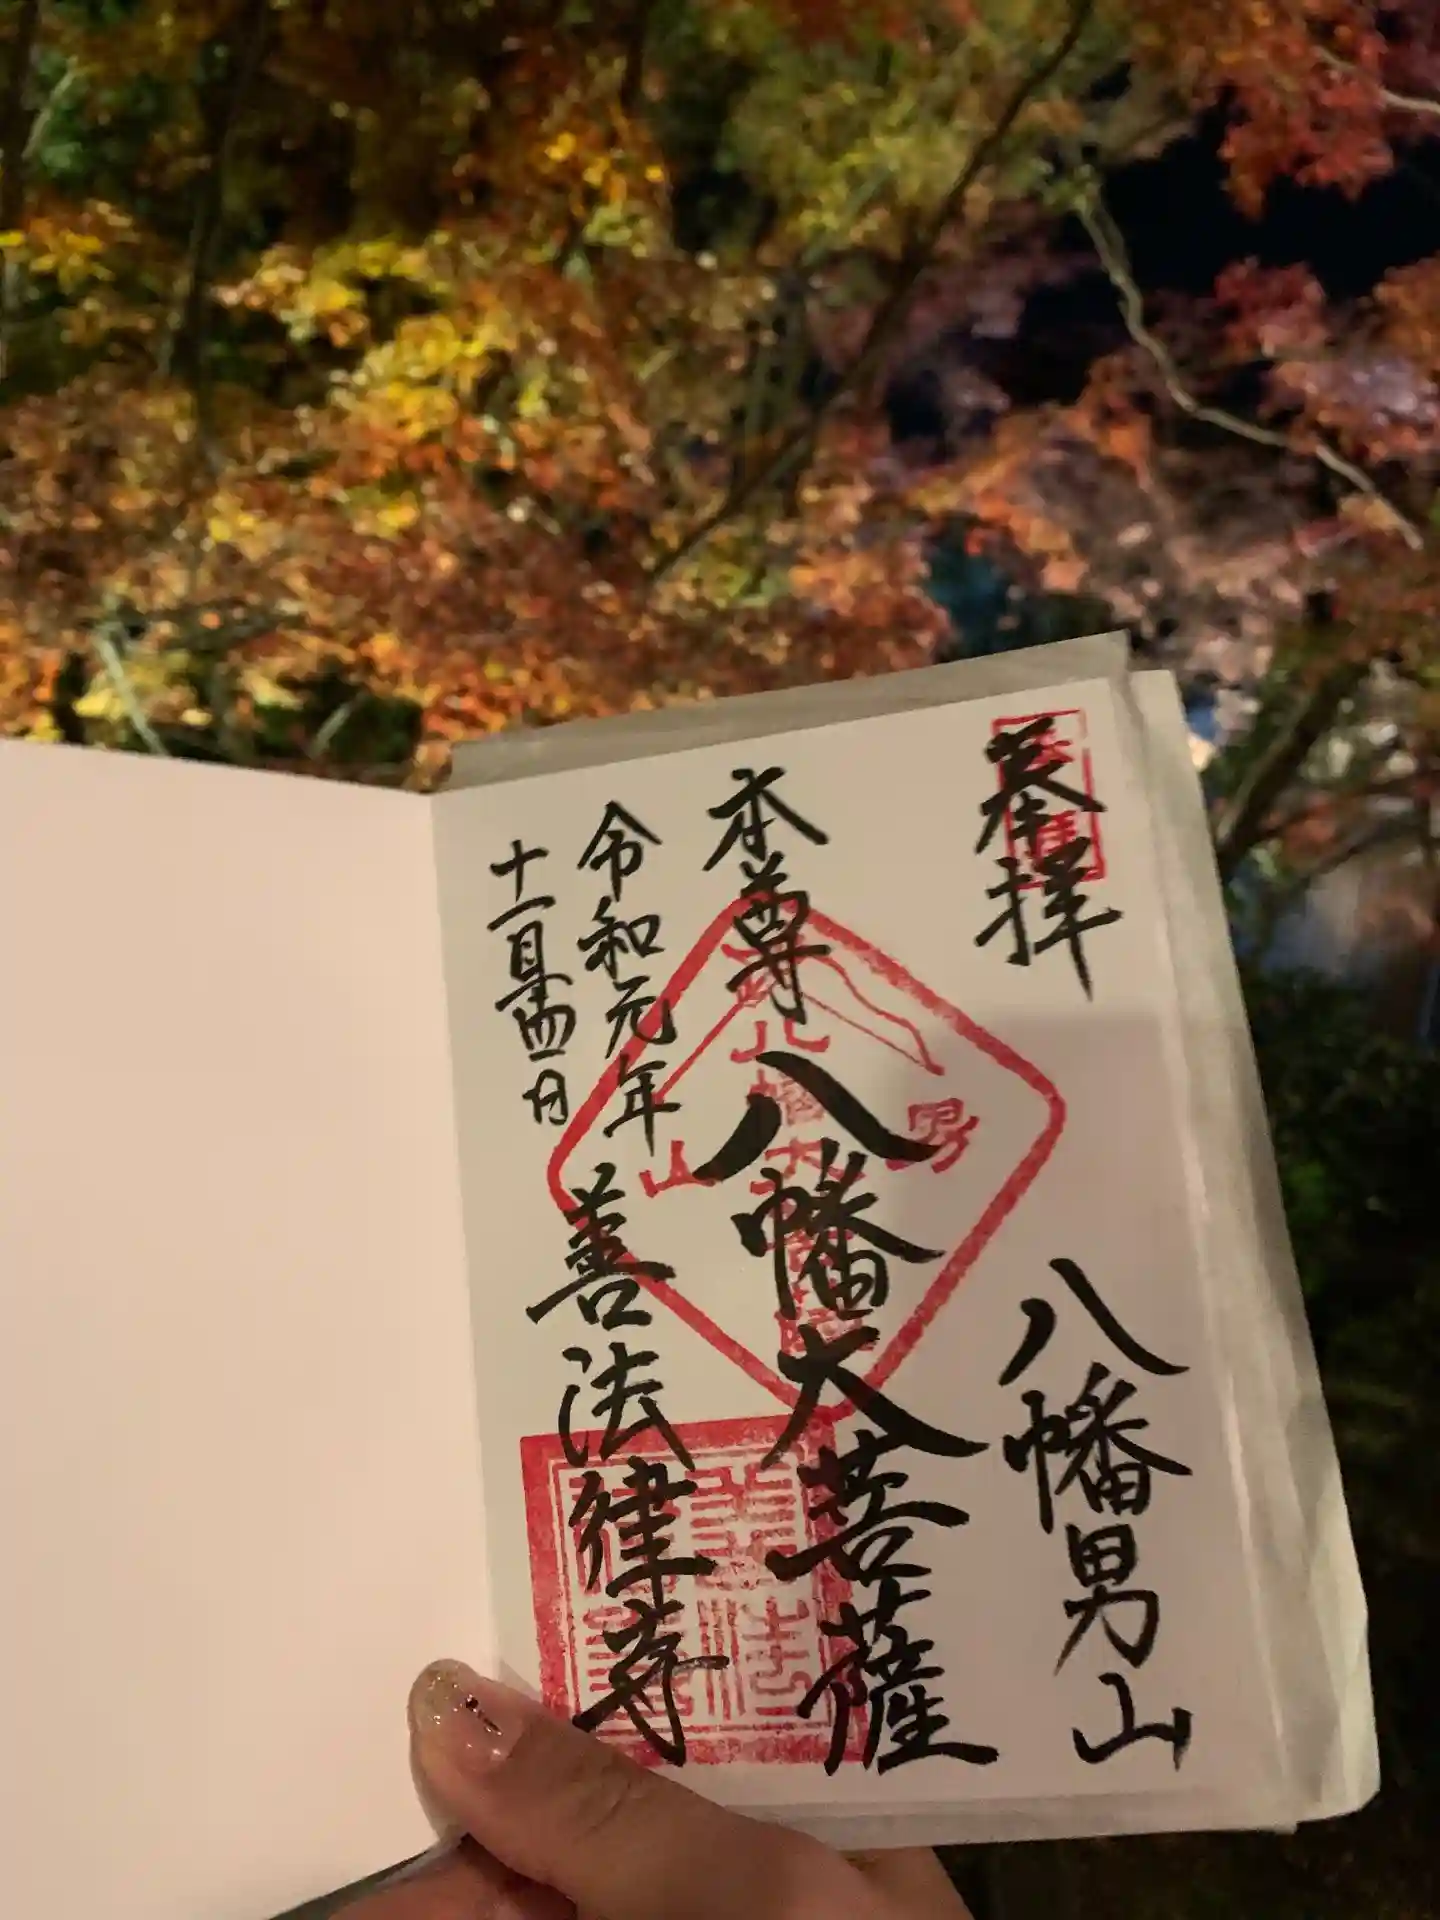 奉拝
八幡男山
本尊 八幡大菩薩
令和元年
十一月廿四日
善法律寺
男
山